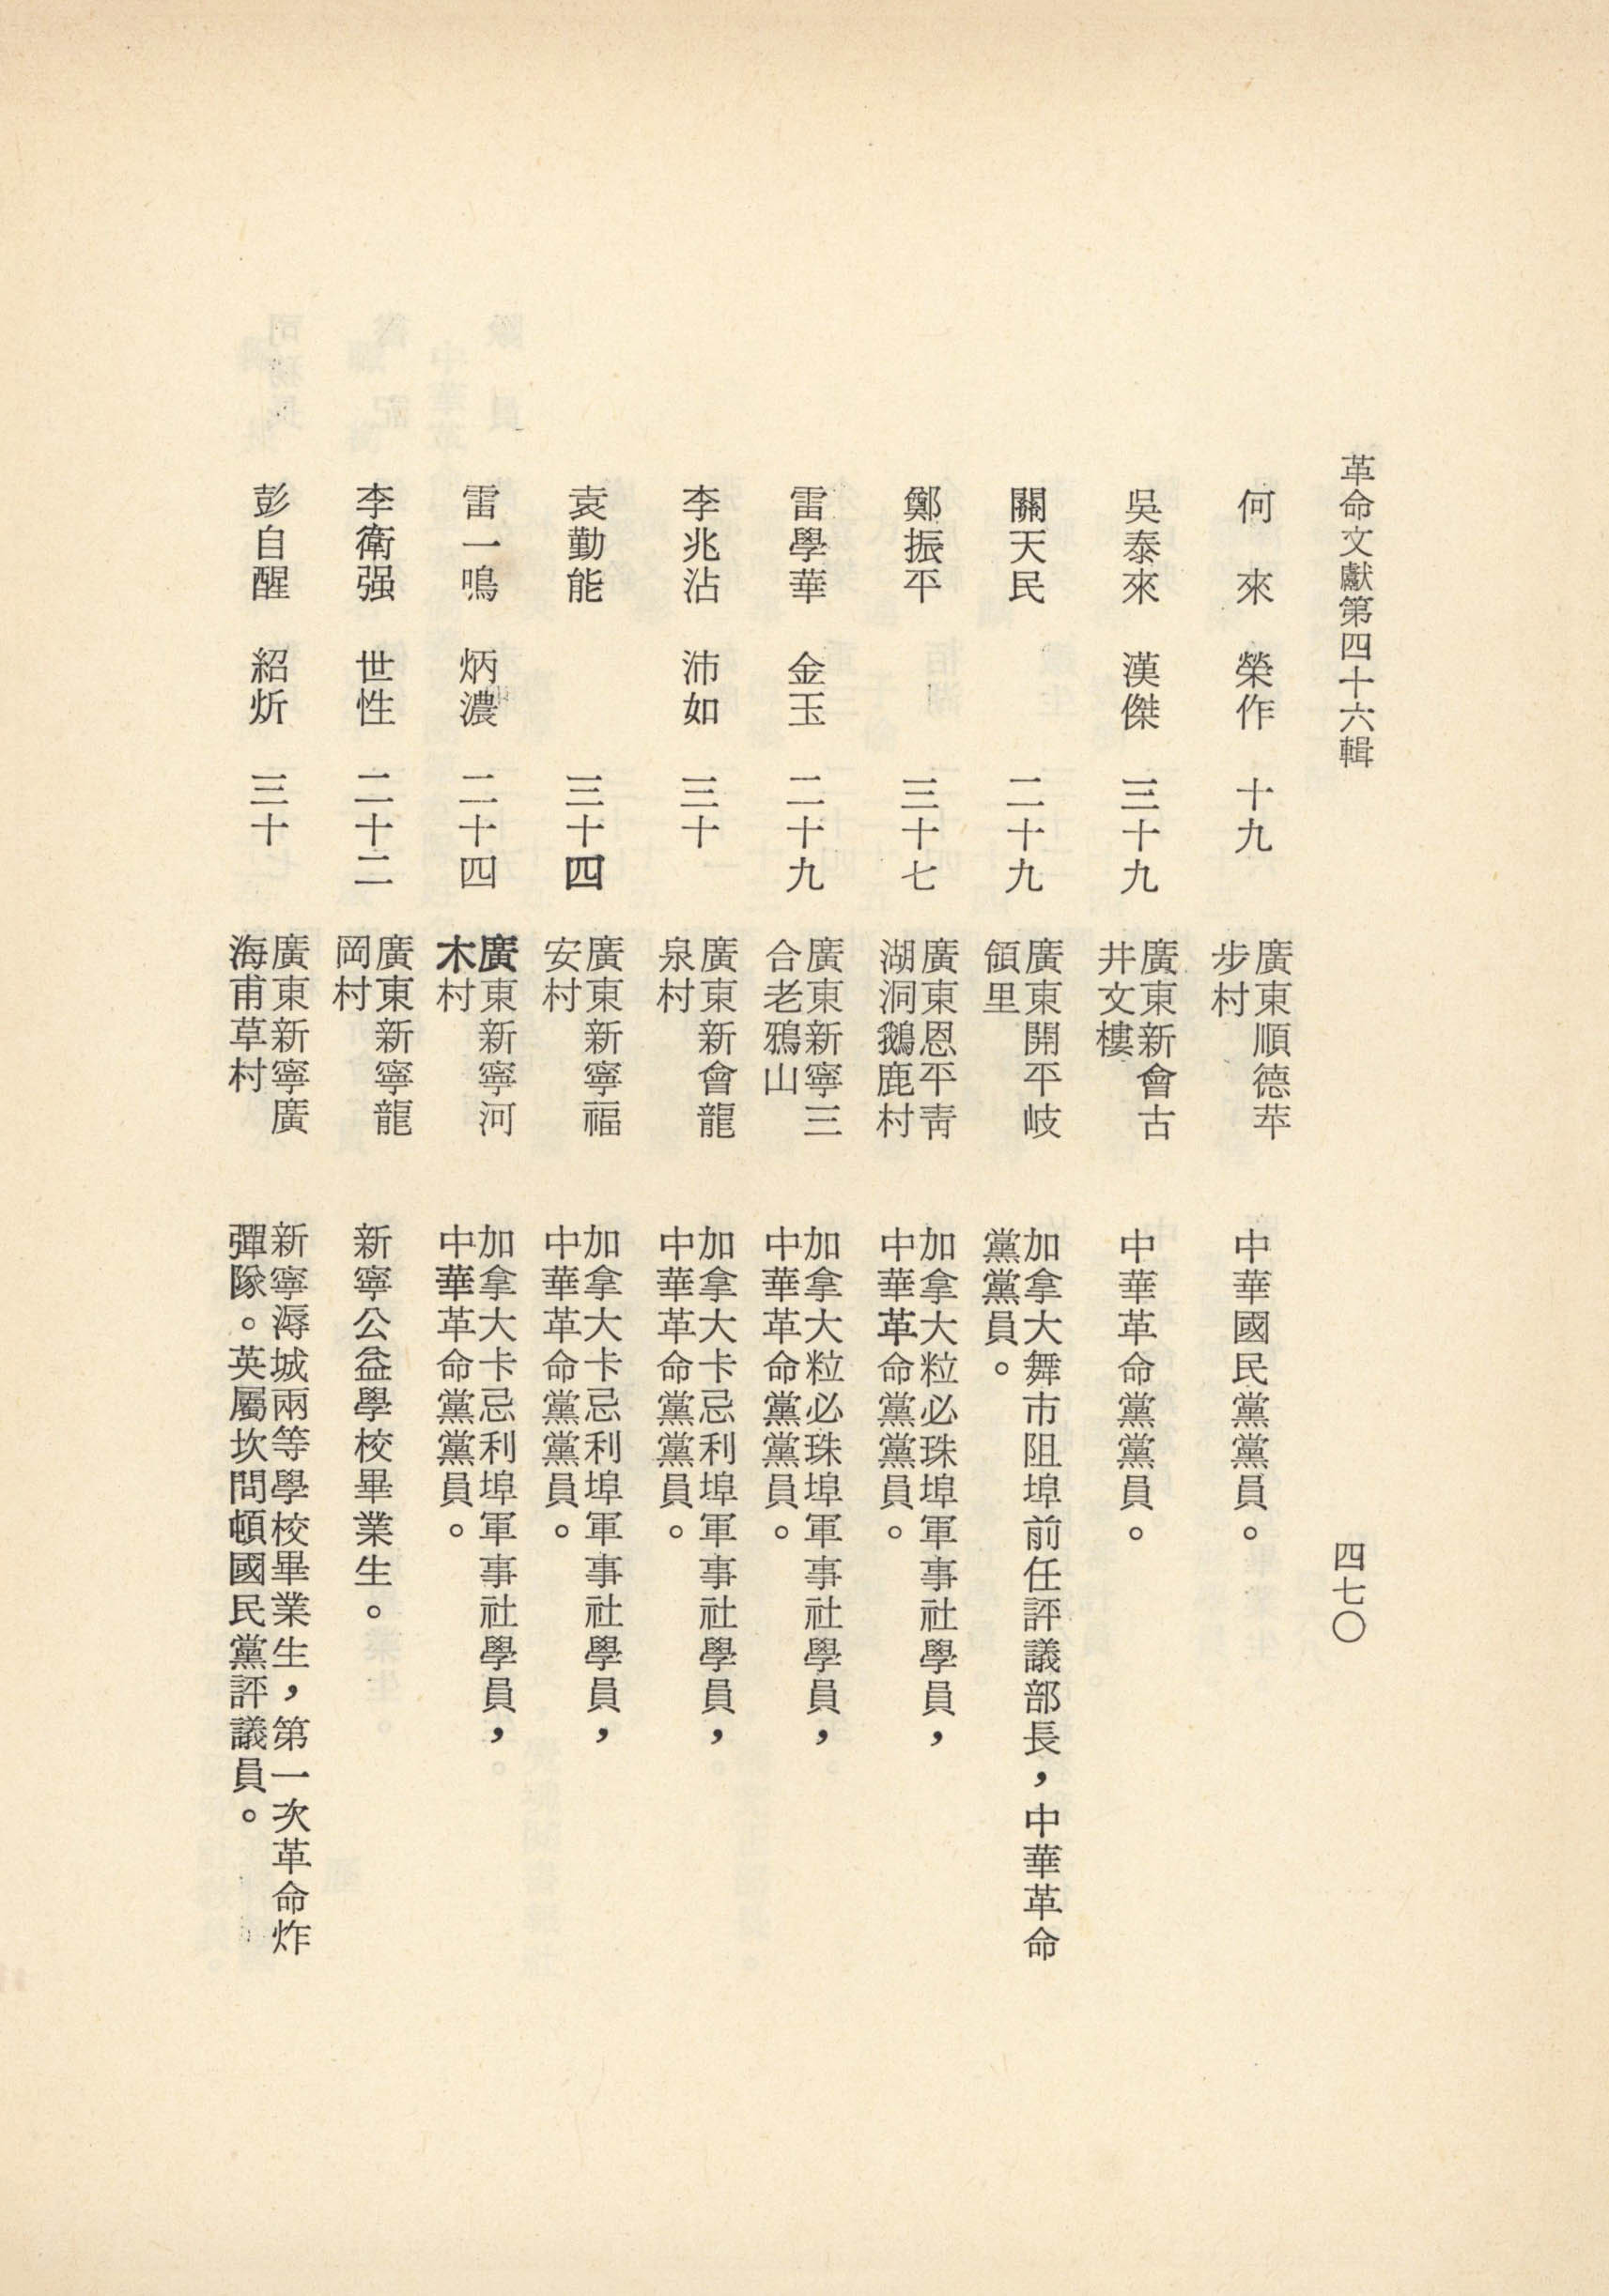 革命文獻第四十六輯
四七〇
何　來　榮作　十九
廣東順德苹
步村
中華國民黨黨員。
吳泰來　漢傑　三十九
廣東新會古
井文樓
中華革命黨黨員。
關天民　二十九
廣東開平岐
領里
加拿大舞市阻埠前任評議部長，中華革命
黨黨員。
鄭振平　三十七
廣東恩平靑
湖洞鵝鹿村
加拿大粒必珠埠軍事社學員，
中華革命黨黨員。
雷學華　金玉　二十九
廣東新寧三
合老鴉山
加拿大粒必珠埠軍事社學員，
中華革命黨黨員。
李兆沾　沛如　三十
廣東新會龍
泉村
加拿大卡忌利埠軍事社學員，
中華革命黨黨員。
袁勤能　三十四
廣東新寧福
安村
加拿大卡忌利埠軍事社學員，
中華革命黨黨員。
雷一鳴　炳濃　二十四
廣東新寧河
木村
加拿大卡忌利埠軍事社學員，
中華革命黨黨員。
李衛强　世性　二十二
廣東新寧龍
岡村
新寧公益學校畢業生。
彭自醒　紹炘　三十
廣東新寧廣
海甫草村
新寧溽城兩等學校畢業生，第一次革命炸
彈隊。英屬坎問頓國民黨評議員。